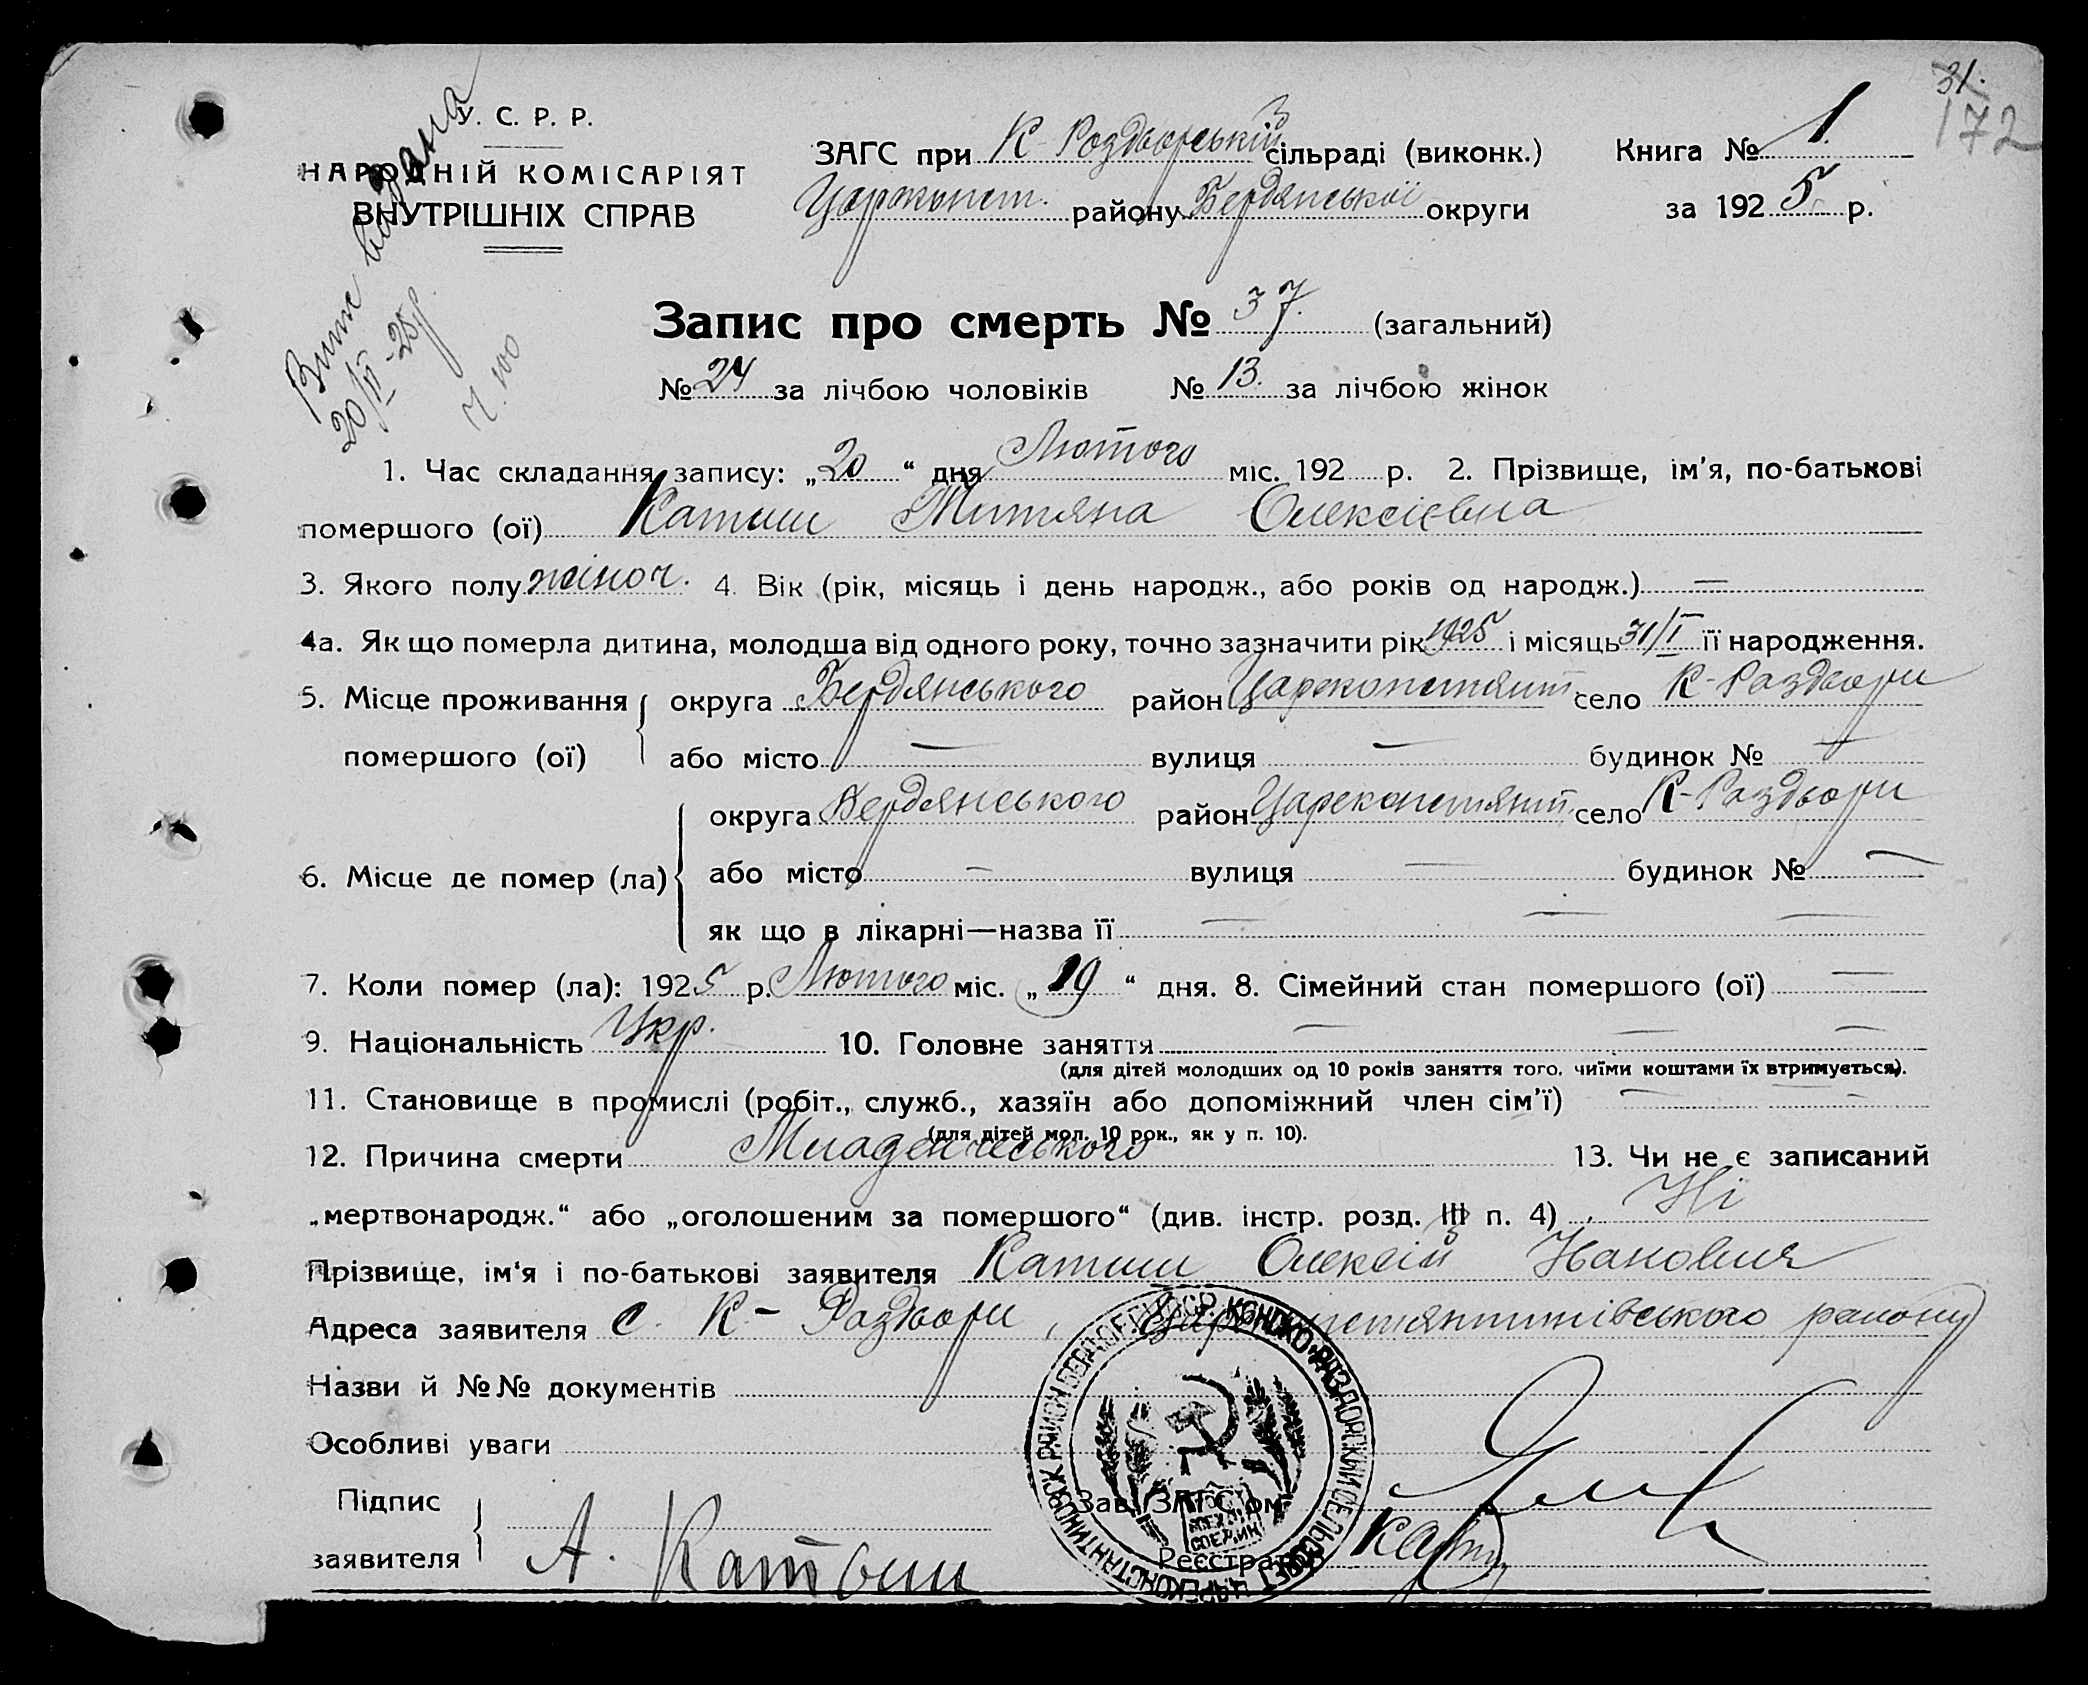 31.
172
У. С. Р. Р.
НАРОДНІЙ КОМІСАРІЯТ
ВНУТРІШНІХ СПРАВ
видана
20/II-25р.
ЗАГС при К-Роздорській сільраді (виконк.) Книга № 1.
Царконст. району Бердянської округи за 1925 р.
Запис про смерть № 37. (загальний)
№ 24 за лічбою чоловіків № 13. за лічбою жінок
1. Час складання запису: „20“ дня Лютого міс. 192 р. 2. Прізвище, ім'я, по-батькові
помершого (ої) Катиш Митяна Олексієвна
3. Якого полу жіноч. 4. Вік (рік, місяць і день народж., або років од народж.) —
4а. Як що померла дитина, молодша від одного року, точно зазначити рік 1925 і місяць 31/I її народження.
5. Місце проживання округа Бердянського район Цареконстянт. село К-Раздори
помершого (ої) або місто — вулиця — будинок № —
округа Бердянського район Цареконстянт. село К-Раздори
6. Місце де помер (ла) або місто — вулиця — будинок № —
як що в лікарні—назва її — — —
7. Коли помер (ла): 1925 р. Лютого міс. „19“ дня. 8. Сімейний стан помершого (ої) —
9. Національність Укр. 10. Головне заняття — — —
(для дітей молодших од 10 років заняття того, чиїми коштами їх втримується).
11. Становище в промислі (робіт., служб., хазяїн або допоміжний член сім'ї) — —
(для дітей мол. 10 рок., як у п. 10).
12. Причина смерти Младенчеського 13. Чи не є записаний
„мертвонародж.“ або „оголошеним за помершого“ (див. інстр. розд. III п. 4) Ні
Прізвище, ім'я і по-батькові заявителя Катиш Олексій Іванович
Адреса заявителя с. К- Раздори, Цареконстянтинівського району
Назви й №№ документів
Особливі уваги
Підпис
заявителя А. Катыш
Зав. ЗАГС'ом
Реєстратор
КОНСКО-РАЗДОРСКИЙ СЕЛЬСОВЕТ ЦАРЕКОНСТАНТИНОВСК РАЙОН БЕРД ОК